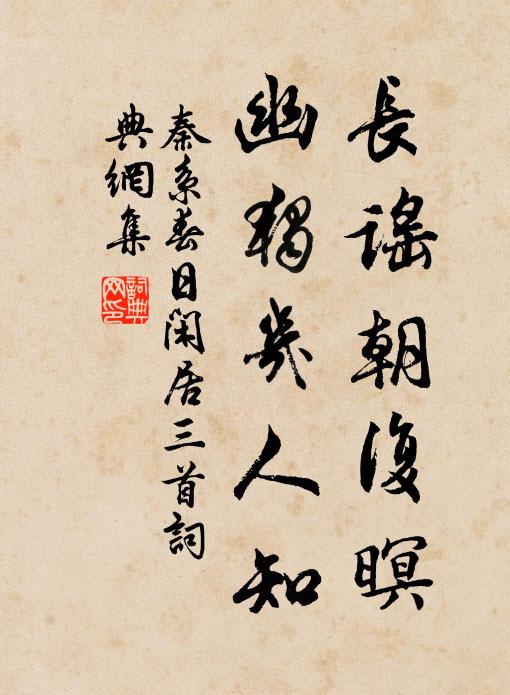 長謠朝復暝
幽獨幾人知
秦系春日閑居三首詞
典網集
詞典網印